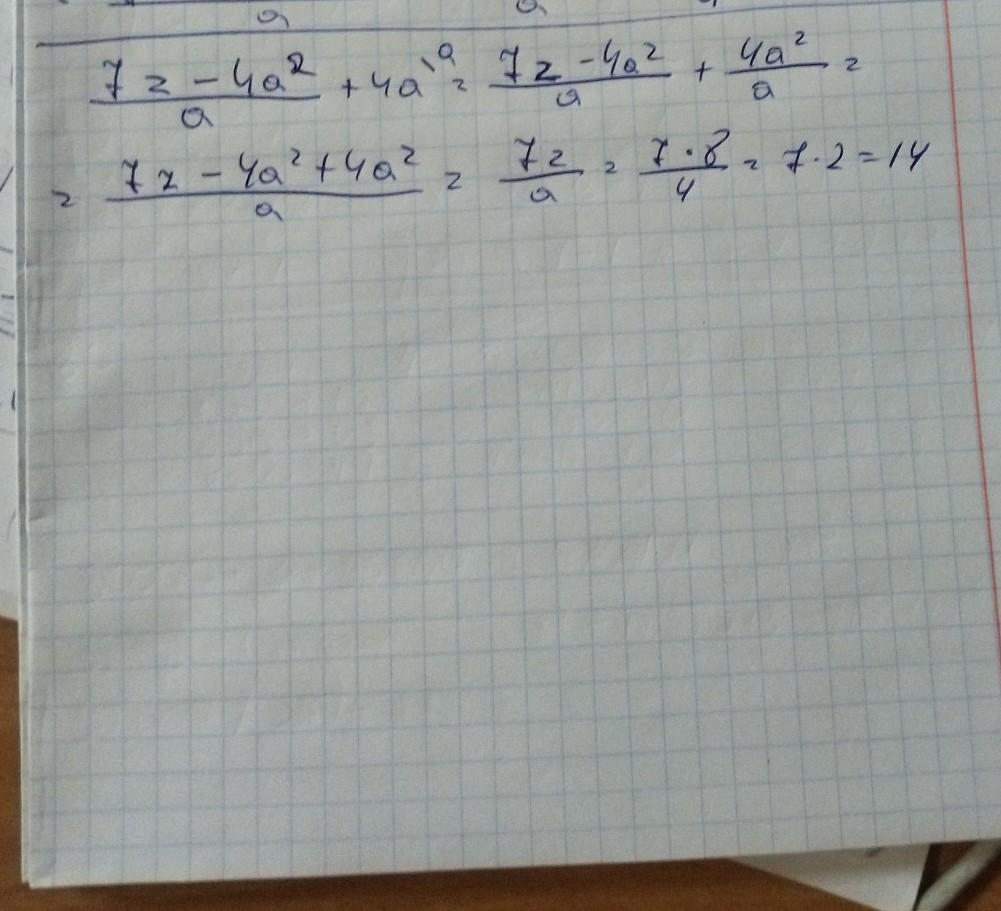 a a
(7z - 4a²)/a + 4a\a = (7z - 4a²)/a + 4a²/a =
= (7z - 4a² + 4a²)/a = 7z/a = (7 · 8)/4 = 7 · 2 = 14